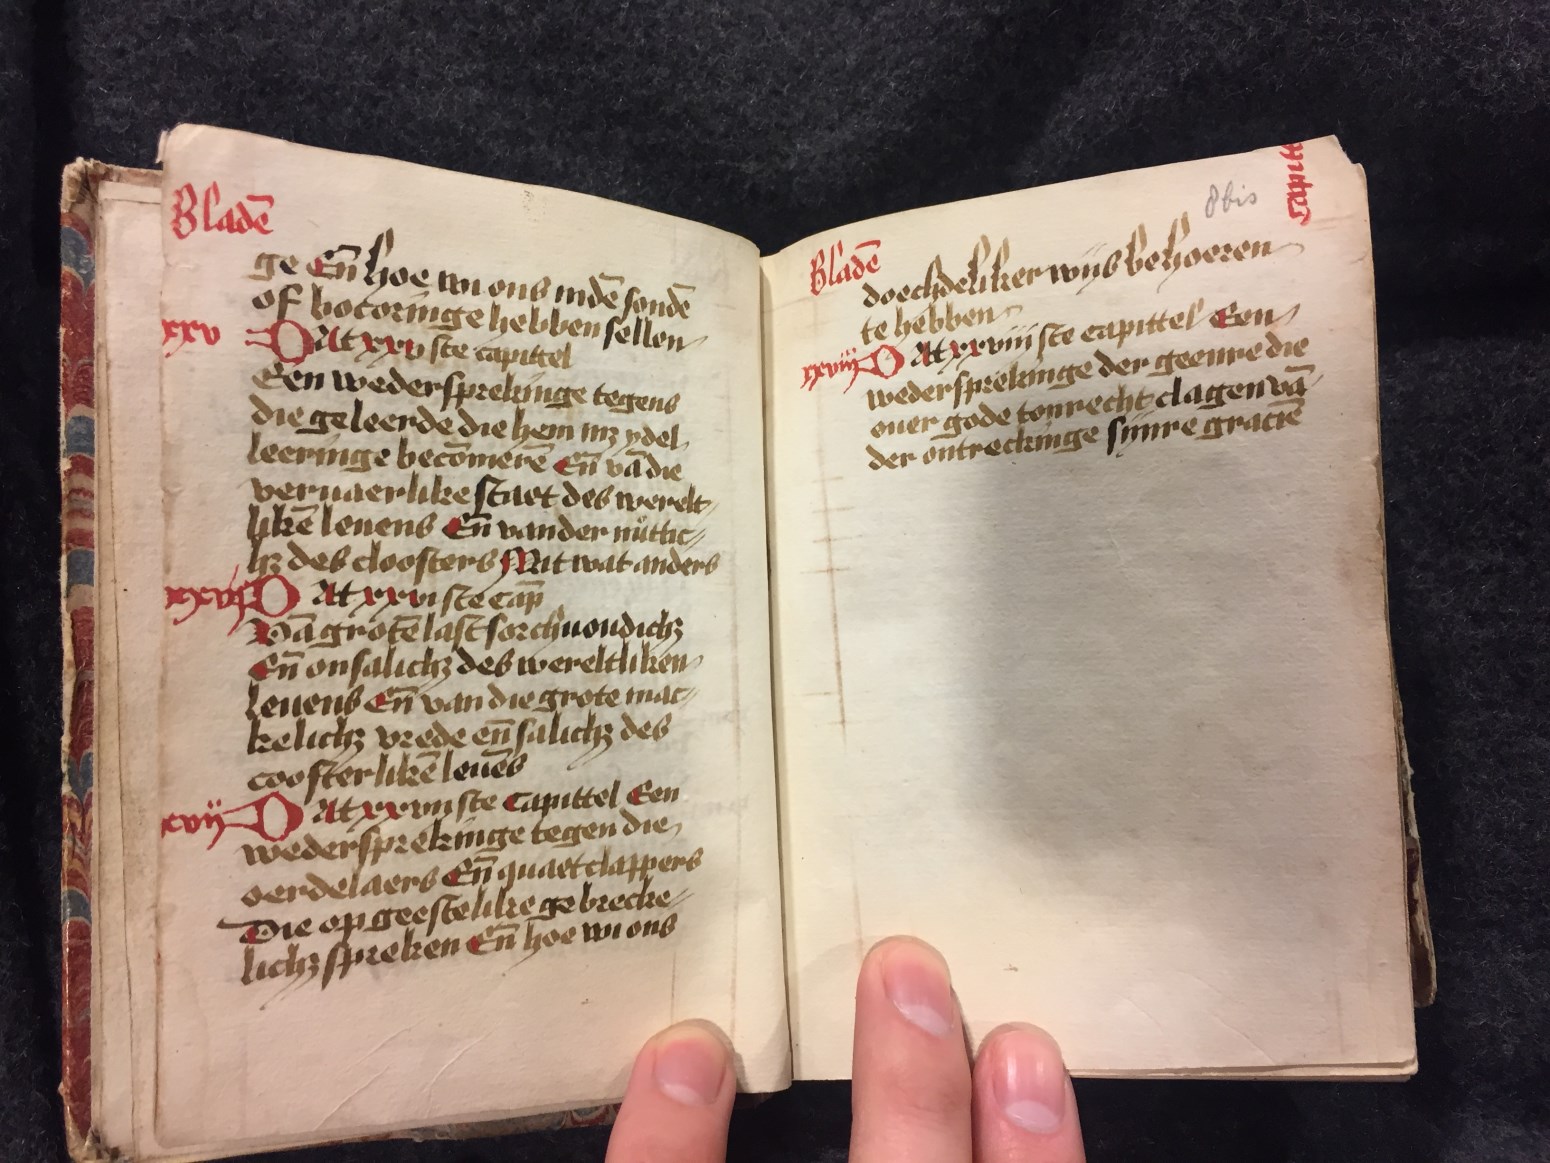 Bladē
ge Eñ hoe wi ons indē sondē
of bocoringe hebben sellen
xxv DAt xxv ste capittel
Een wedersprekinge tegens
die geleerde die hem mz ydel
leeringe becōmerē Eñ vā die
veruaerlike staet des werelt
likē leuens Eñ vander nuttic
hz des cloosters Mit wat anders
xxvi DAt xxvi ste cap̄
Vā grotē last sorchuoudichz
Eñ onsalichz des wereltliken
leuens Eñ van die grote mac
kelichz vrede eñ salichz des
coosterlikē leuēs
xvij DAt xxvii ste Capittel Een
wedersprekinge tegen die
oerdelaers Eñ quaet clappers
Die op geestelike gebrecke
lichz spreken Eñ hoe wi ons
8bis
Capitt
Bladē
doechdeliker wijs behoeren
te hebben
xxviij DAt xxviii ste capittel Een
wedersprekinge der geenre die
ouer gode tonrecht clagen vā
der ontreckinge sijnre graciē